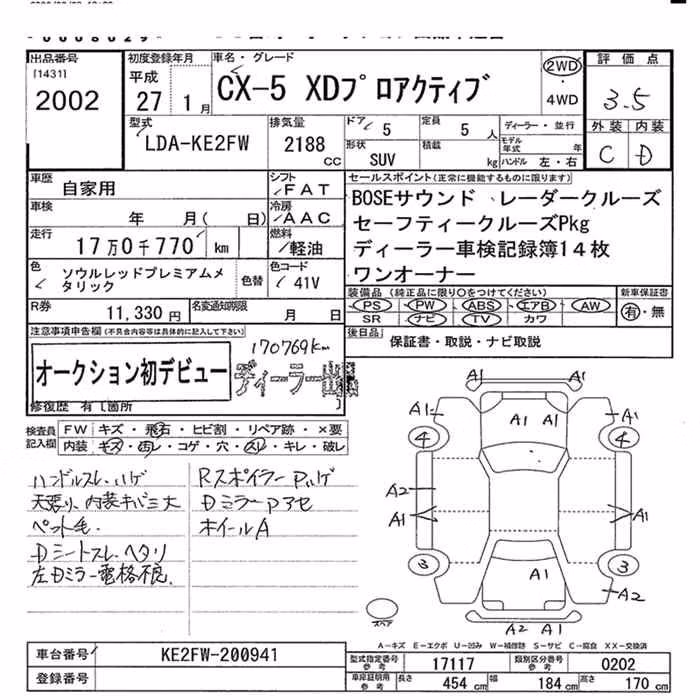 出品番号
[1431]
2002
初度登録年月
平成
27 1月
車名・グレード
CX-5 XDプロアクティブ
2WD
4WD
評価点
3.5
外装 内装
C D
型式
LDA-KE2FW
排気量
2188
CC
ドア 5
定員 5人
ディーラー・並行
形状
SUV
積載 kg
モデル年式 年
ハンドル 左・右
車歴
自家用
シフト
FAT
セールスポイント(正常に機能するものに限ります)
車検
年 月( 日)
冷房
AAC
BOSEサウンド レーダークルーズ
セーフティークルーズPkg
走行
17万0千770 km
燃料
軽油
ディーラー車検記録簿14枚
ワンオーナー
色
ソウルレッドプレミアムメタリック
色替
色コード
41V
装備品(純正品に限り○をつけてください)
新車保証書
PS PW ABS エアB AW
有・無
SR ナビ TV カワ
R券
11,330円
名変通知期限
月 日
後日品
保証書・取説・ナビ取説
注意事項申告欄(不具合内容等は具体的に記入して下さい)
170769km
オークション初デビュー
ディーラー
修復歴 有[箇所 ]
検査員記入欄
FW キズ・飛石・ヒビ割・リペア跡・×要
内装 キズ・汚レ・コゲ・穴・スレ・キレ・破レ
ハンドルスレ、ハゲ
天張り、内装キバミ大
ペット毛
Dシートスレ、ヘタリ
左Dミラー電格不良
Rスポイラー Pハゲ
Dミラー Pアセ
ホイールA
A1
A1 A1 A1 A1
4 4
A2
A1 A1
3 3
A1
A2
A2 A1
スペア
A-キズ E-エクボ U-凹み W-補修跡 S-サビ C-腐食 XX-交換済
車台番号
KE2FW-200941
登録番号
型式指定番号
参考
17117
類別区分番号
参考
0202
車庫証明用
参考
長さ 454cm
幅 184cm
高さ 170cm